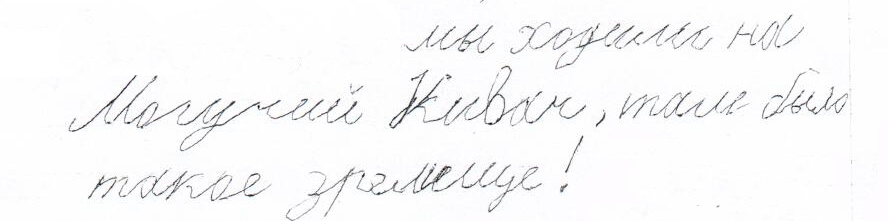 мы ходили на
Могучий Кивач, там было
такое зрелище!